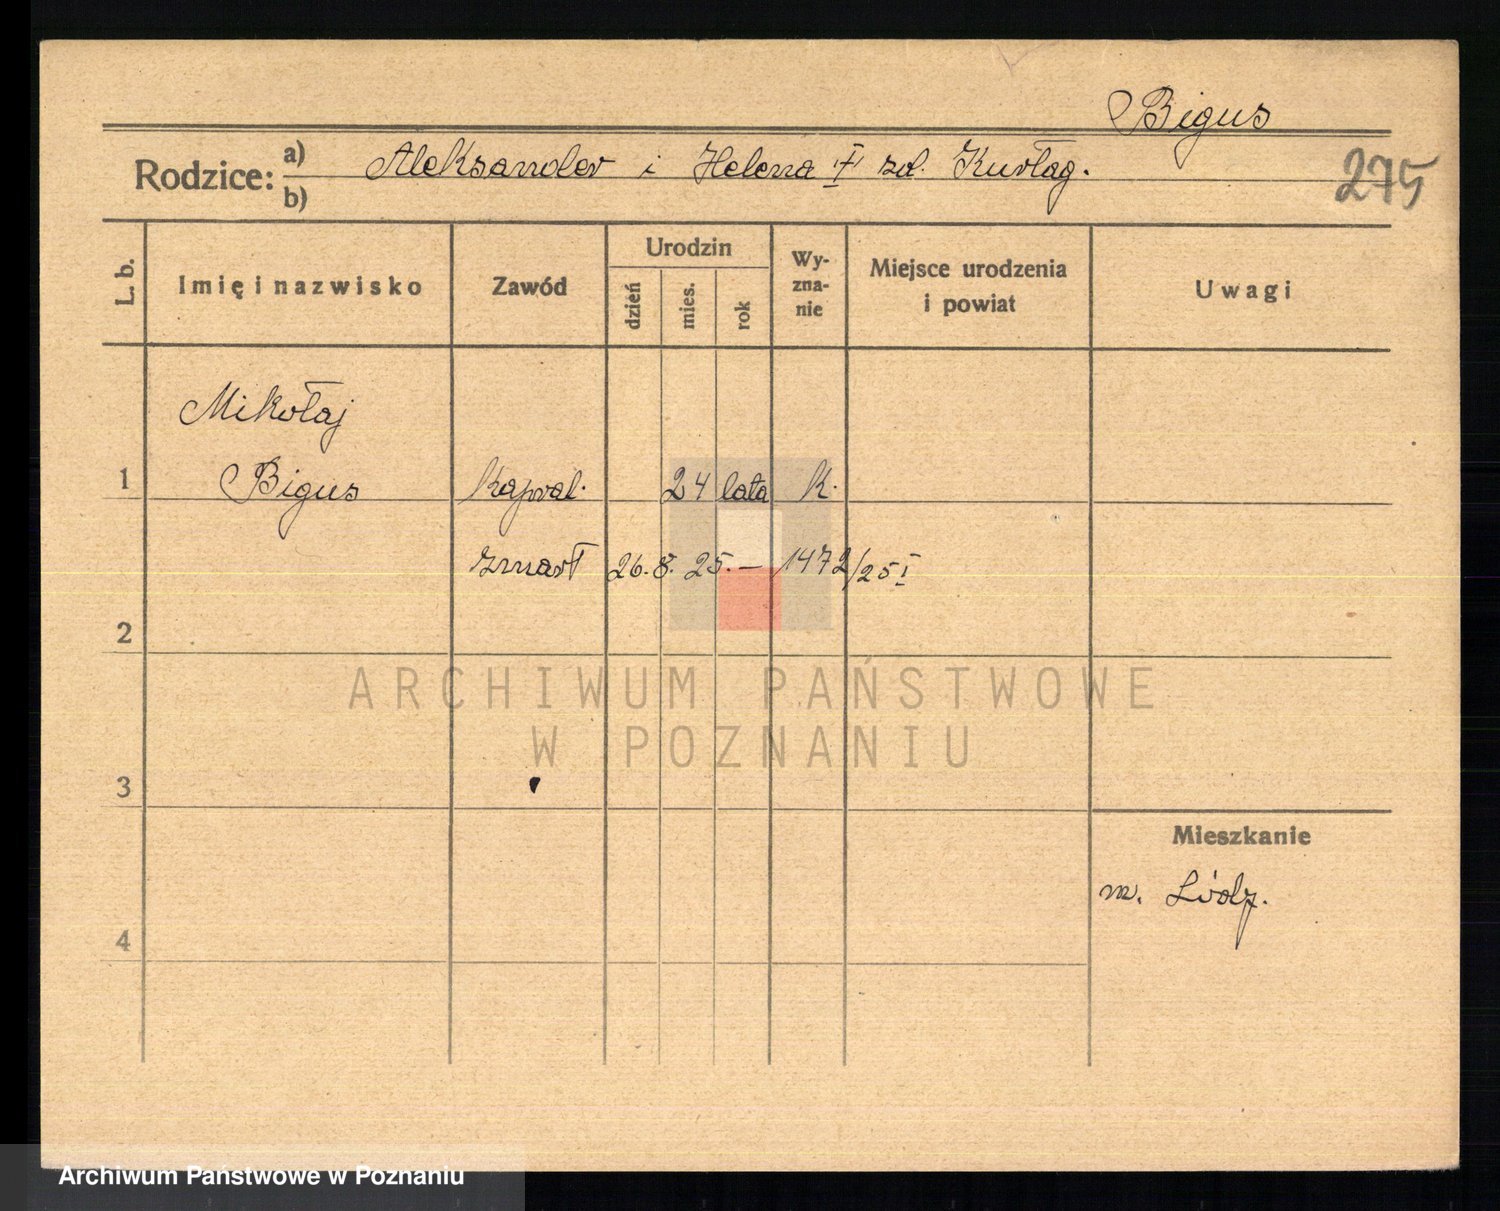 Bigus
Rodzice: a) Aleksander i Helena "I" zd. Kurłag.
b)
275
L. b.
Imię i nazwisko
Zawód
Urodzin
dzień
mies.
rok
Wy-
zna-
nie
Miejsce urodzenia
i powiat
Uwagi
Mikołaj
1 Bigus kapral. 24 lata K.
zmarł 26.8.25.— 1472/25 I
2
ARCHIWUM PAŃSTWOWE
W POZNANIU
3
Mieszkanie
m. Łódź.
4
Archiwum Państwowe w Poznaniu